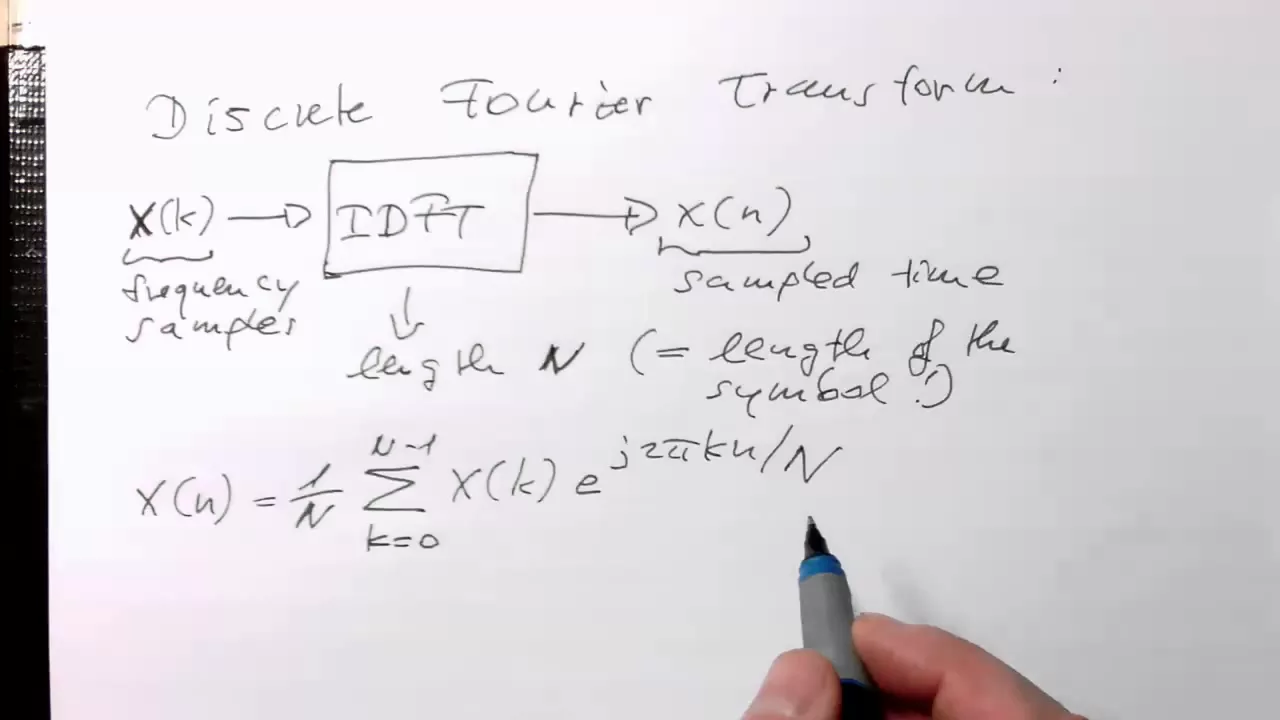 Discrete Fourier Transform :
X(k) → IDFT → x(n)
frequency samples
sampled time
↓
length N (= length of the symbol !)
x(n) = 1/N ∑_{k=0}^{N-1} X(k) e^{j2πkn/N}